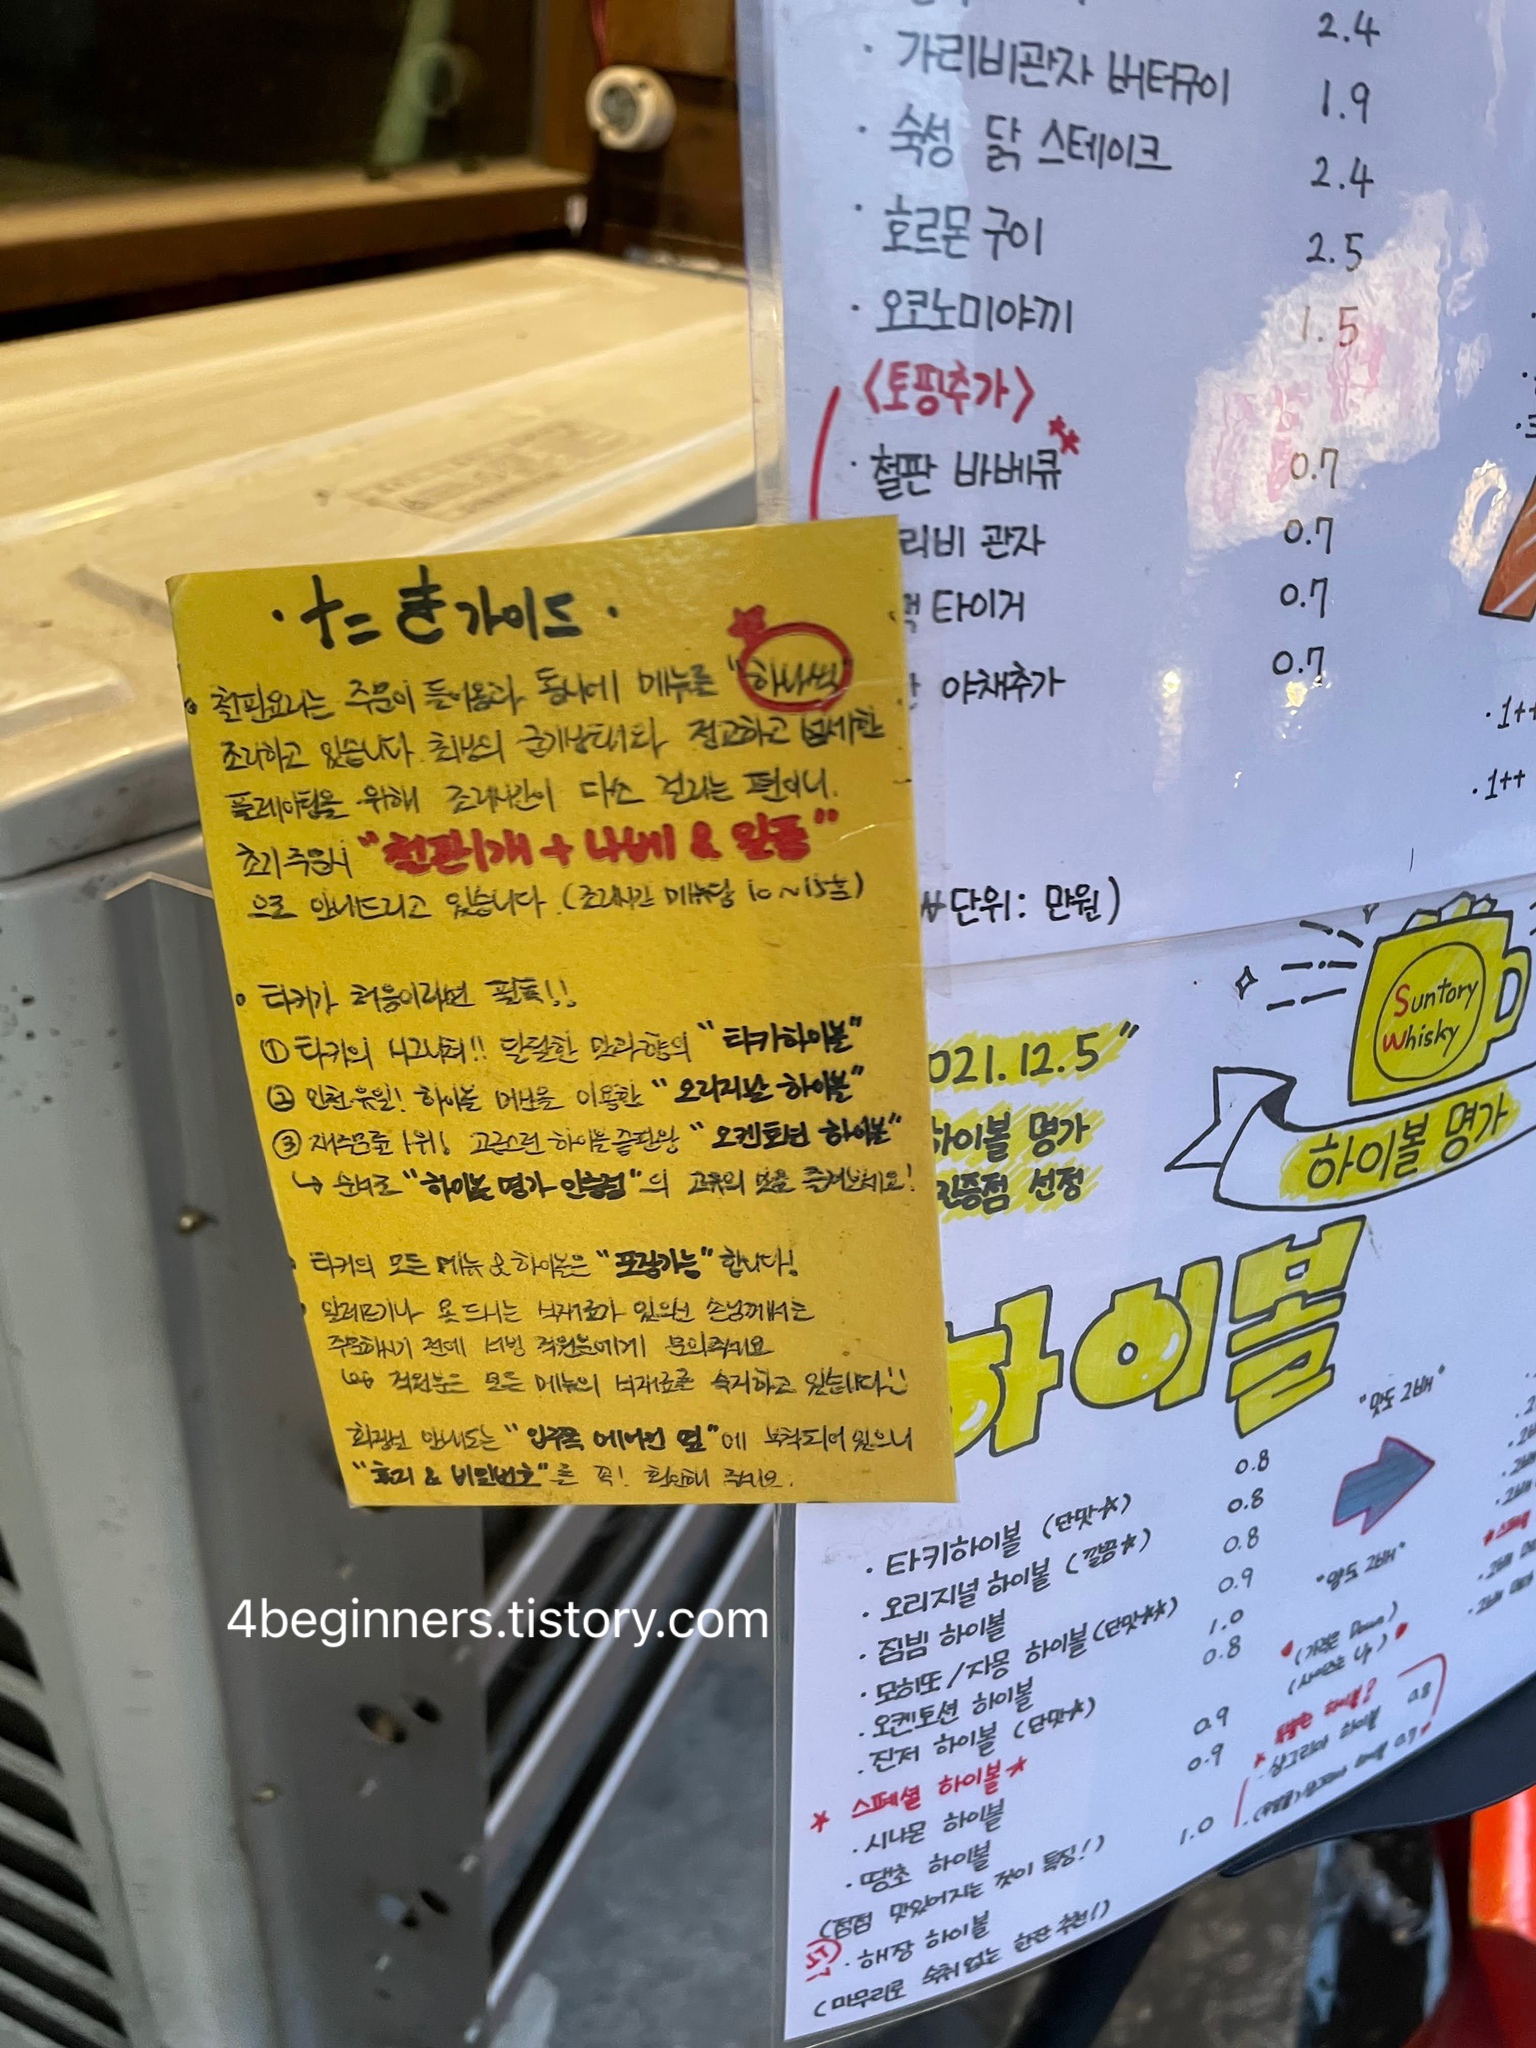 2.4
· 가리비관자 버터구이 1.9
· 숙성 닭 스테이크 2.4
· 호르몬 구이 2.5
· 오코노미야끼 1.5
<토핑추가>
· 철판 바베큐 0.7
리비 관자 0.7
타이거 0.7
야채추가 0.7
· 1++
· 1++
단위: 만원)
가이드 ·
철판요리는 주문이 들어옴과 동시에 메뉴를 "하나씩"
조리하고 있습니다. 최상의 굽기상태와 정교하고 섬세한
플레이팅을 위해 조리시간이 다소 걸리는 편이니,
초기주문시 "철판1개 + 나베 & 일품"
으로 안내드리고 있습니다. (조리시간 메뉴당 10~15분)
타키가 처음이라면 필독!!
① 타키의 시그니처!! 달달한 맛과 향의 "타키하이볼"
② 인천 유일! 하이볼 머신을 이용한 "오리지널 하이볼"
③ 재주문률 1위! 고급스런 하이볼 끝판왕 "오켄토션 하이볼"
↳ 순서로 "하이볼 명가 인증점"의 고유의 맛을 즐겨보세요!
타키의 모든 메뉴 & 하이볼은 "포장가능" 합니다!
알레르기나 못 드시는 식재료가 있으신 손님께서는
주문하시기 전에 서빙 직원분에게 문의주세요
직원분은 모든 메뉴의 식재료를 숙지하고 있습니다!!
화장실 안내도는 "입구쪽 에어컨 옆"에 부착되어 있으니
"휴지 & 비밀번호"를 꼭! 확인해 주세요.
021.12.5"
하이볼 명가
인증점 선정
Suntory
Whisky
하이볼 명가
하이볼
"맛도 2배"
"양도 2배"
· 타키하이볼 (단맛☆) 0.8
· 오리지널 하이볼 (깔끔*) 0.8
· 짐빔 하이볼 0.8
· 모히또/자몽 하이볼 (단맛**) 0.9
· 오켄토션 하이볼 1.0
· 진저 하이볼 (단맛*) 0.8
* 스페셜 하이볼 *
· 시나몬 하이볼 0.9
· 땡초 하이볼 0.9
(점점 맛있어지는 것이 특징!)
· 해장 하이볼 1.0
(마무리로 숙취 없는 한잔 추천!)
(가격은 Down)
(사이즈는 Up)
· 샹그리아 하이볼 0.8
4beginners.tistory.com